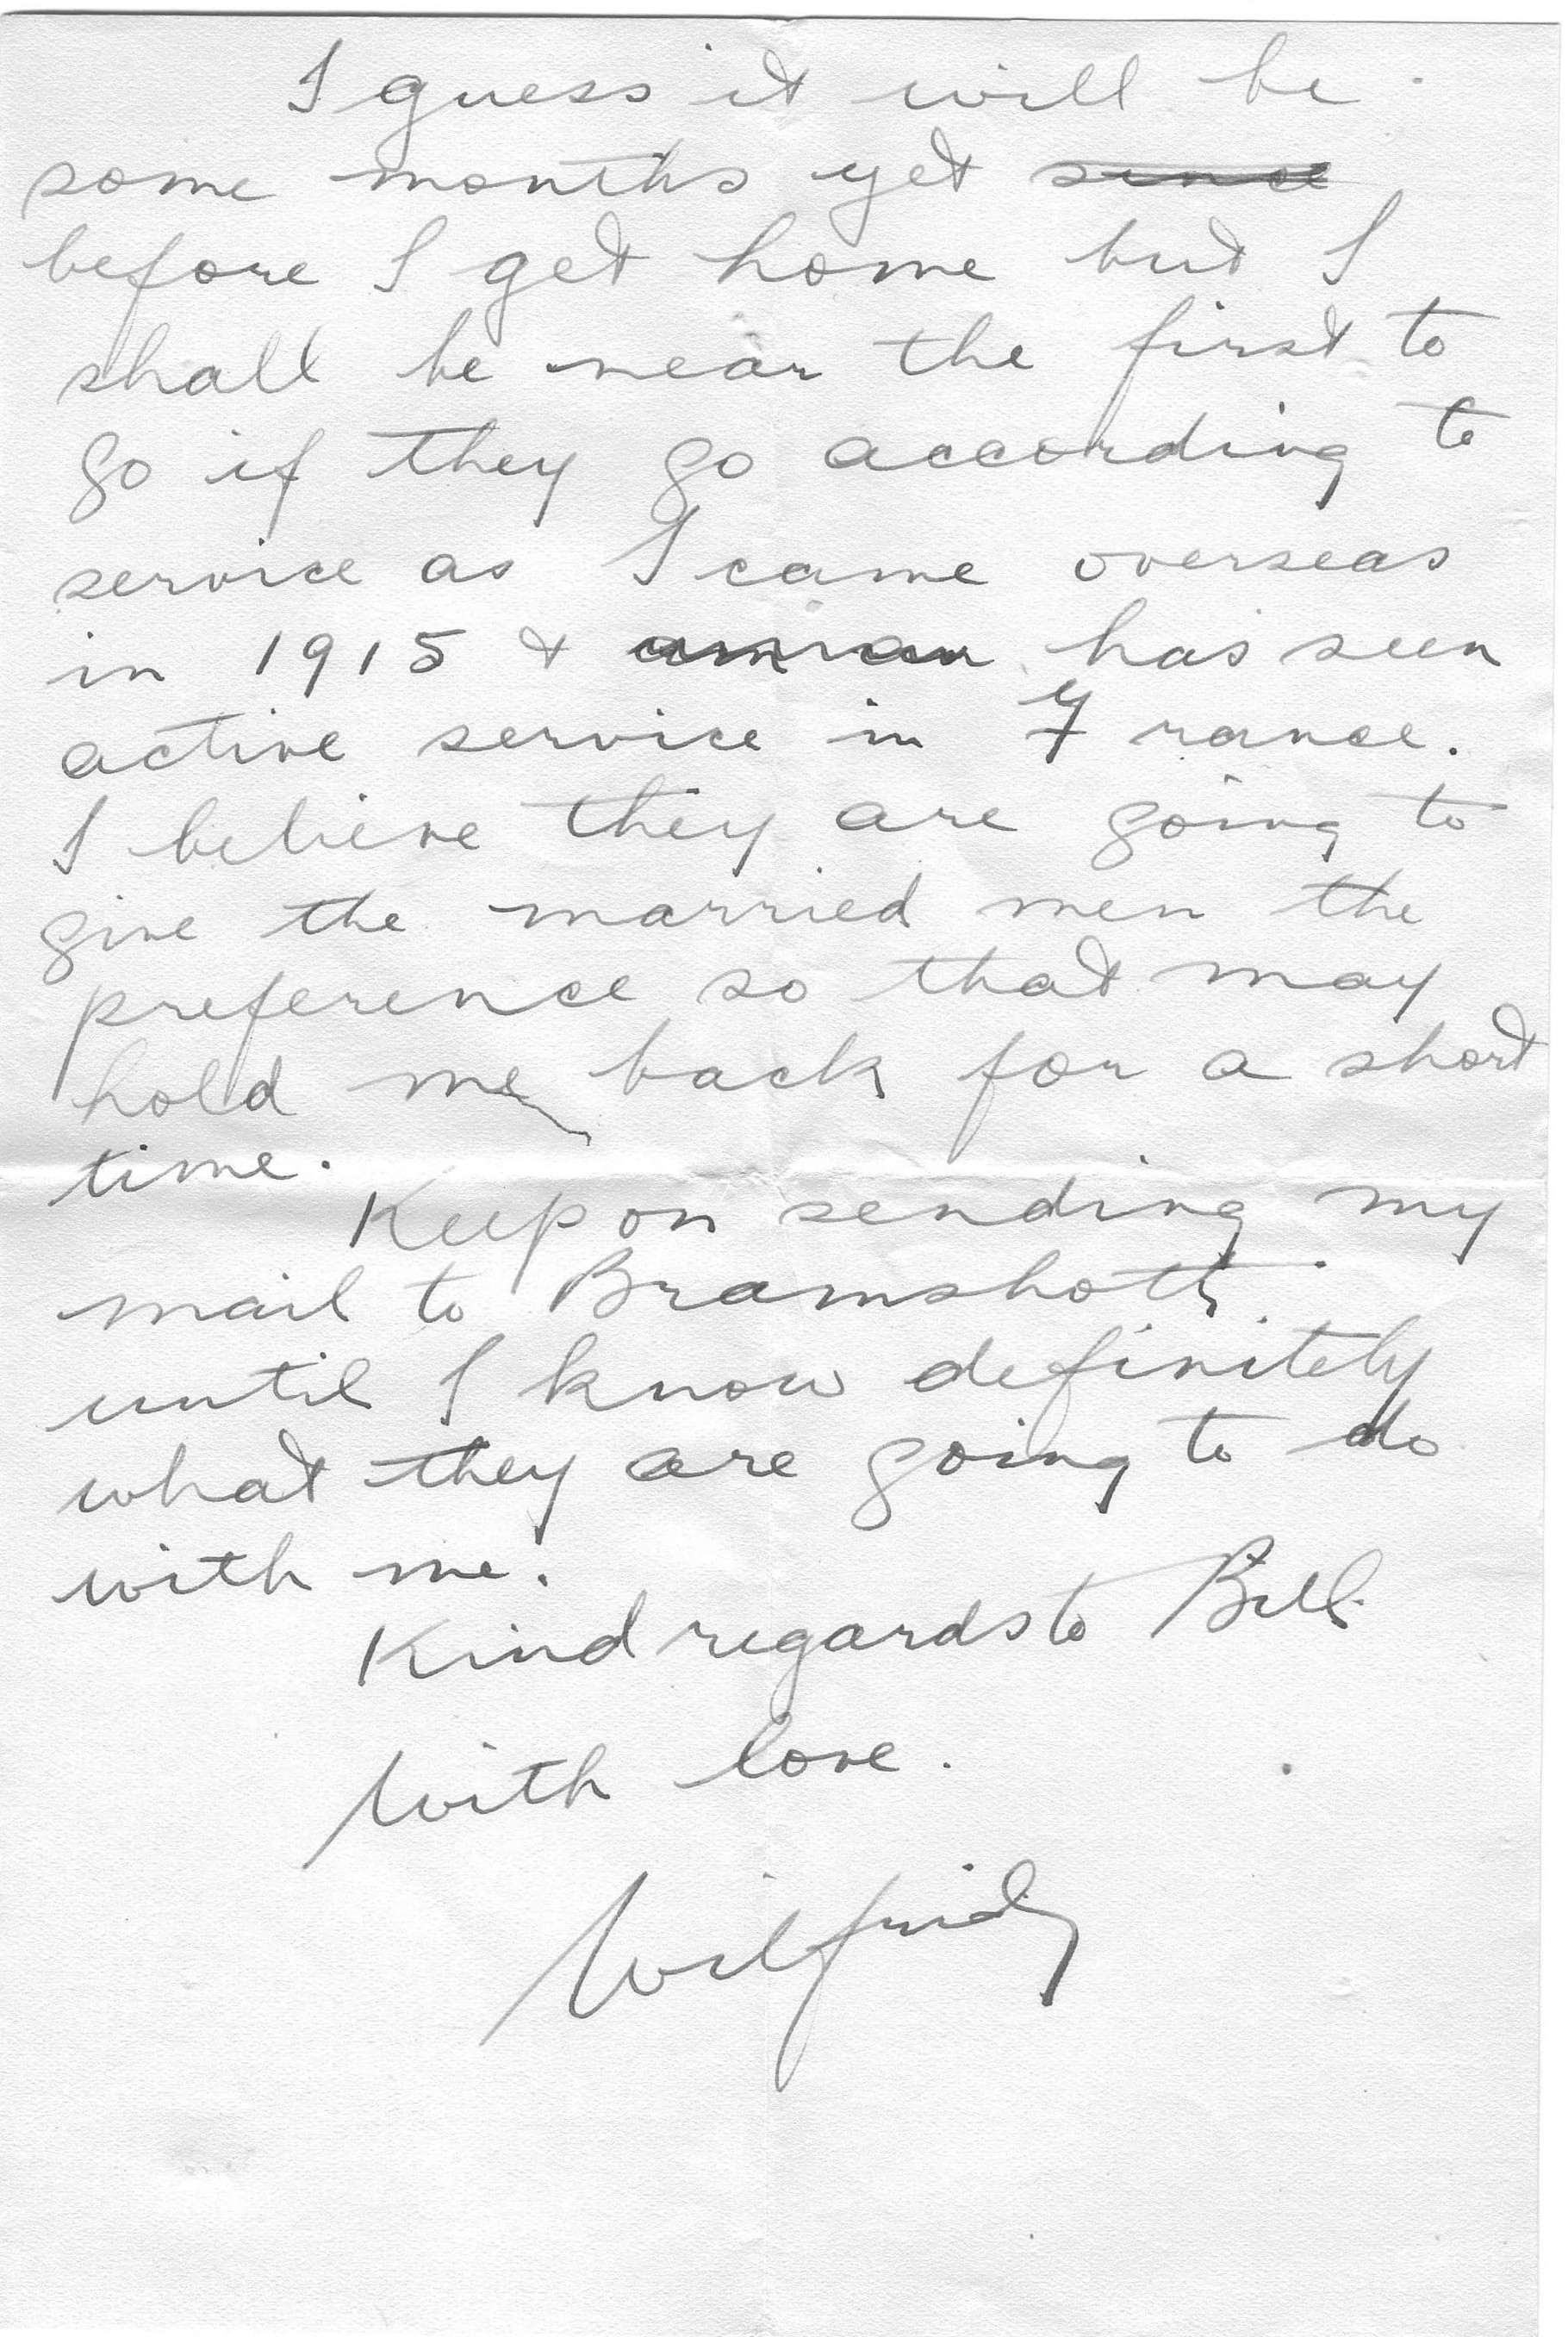 I guess it will be
some months yet since
before I get home but I
shall be near the first to
go if they go according to
service as I came overseas
in 1915 & has seen
active service in France.
I believe they are going to
give the married men the
preference so that may
hold me back for a short
time.
Keep on sending my
mail to Bramshott
until I know definitely
what they are going to do
with me.
Kind regards to Bill.
With love.
Wilfrid